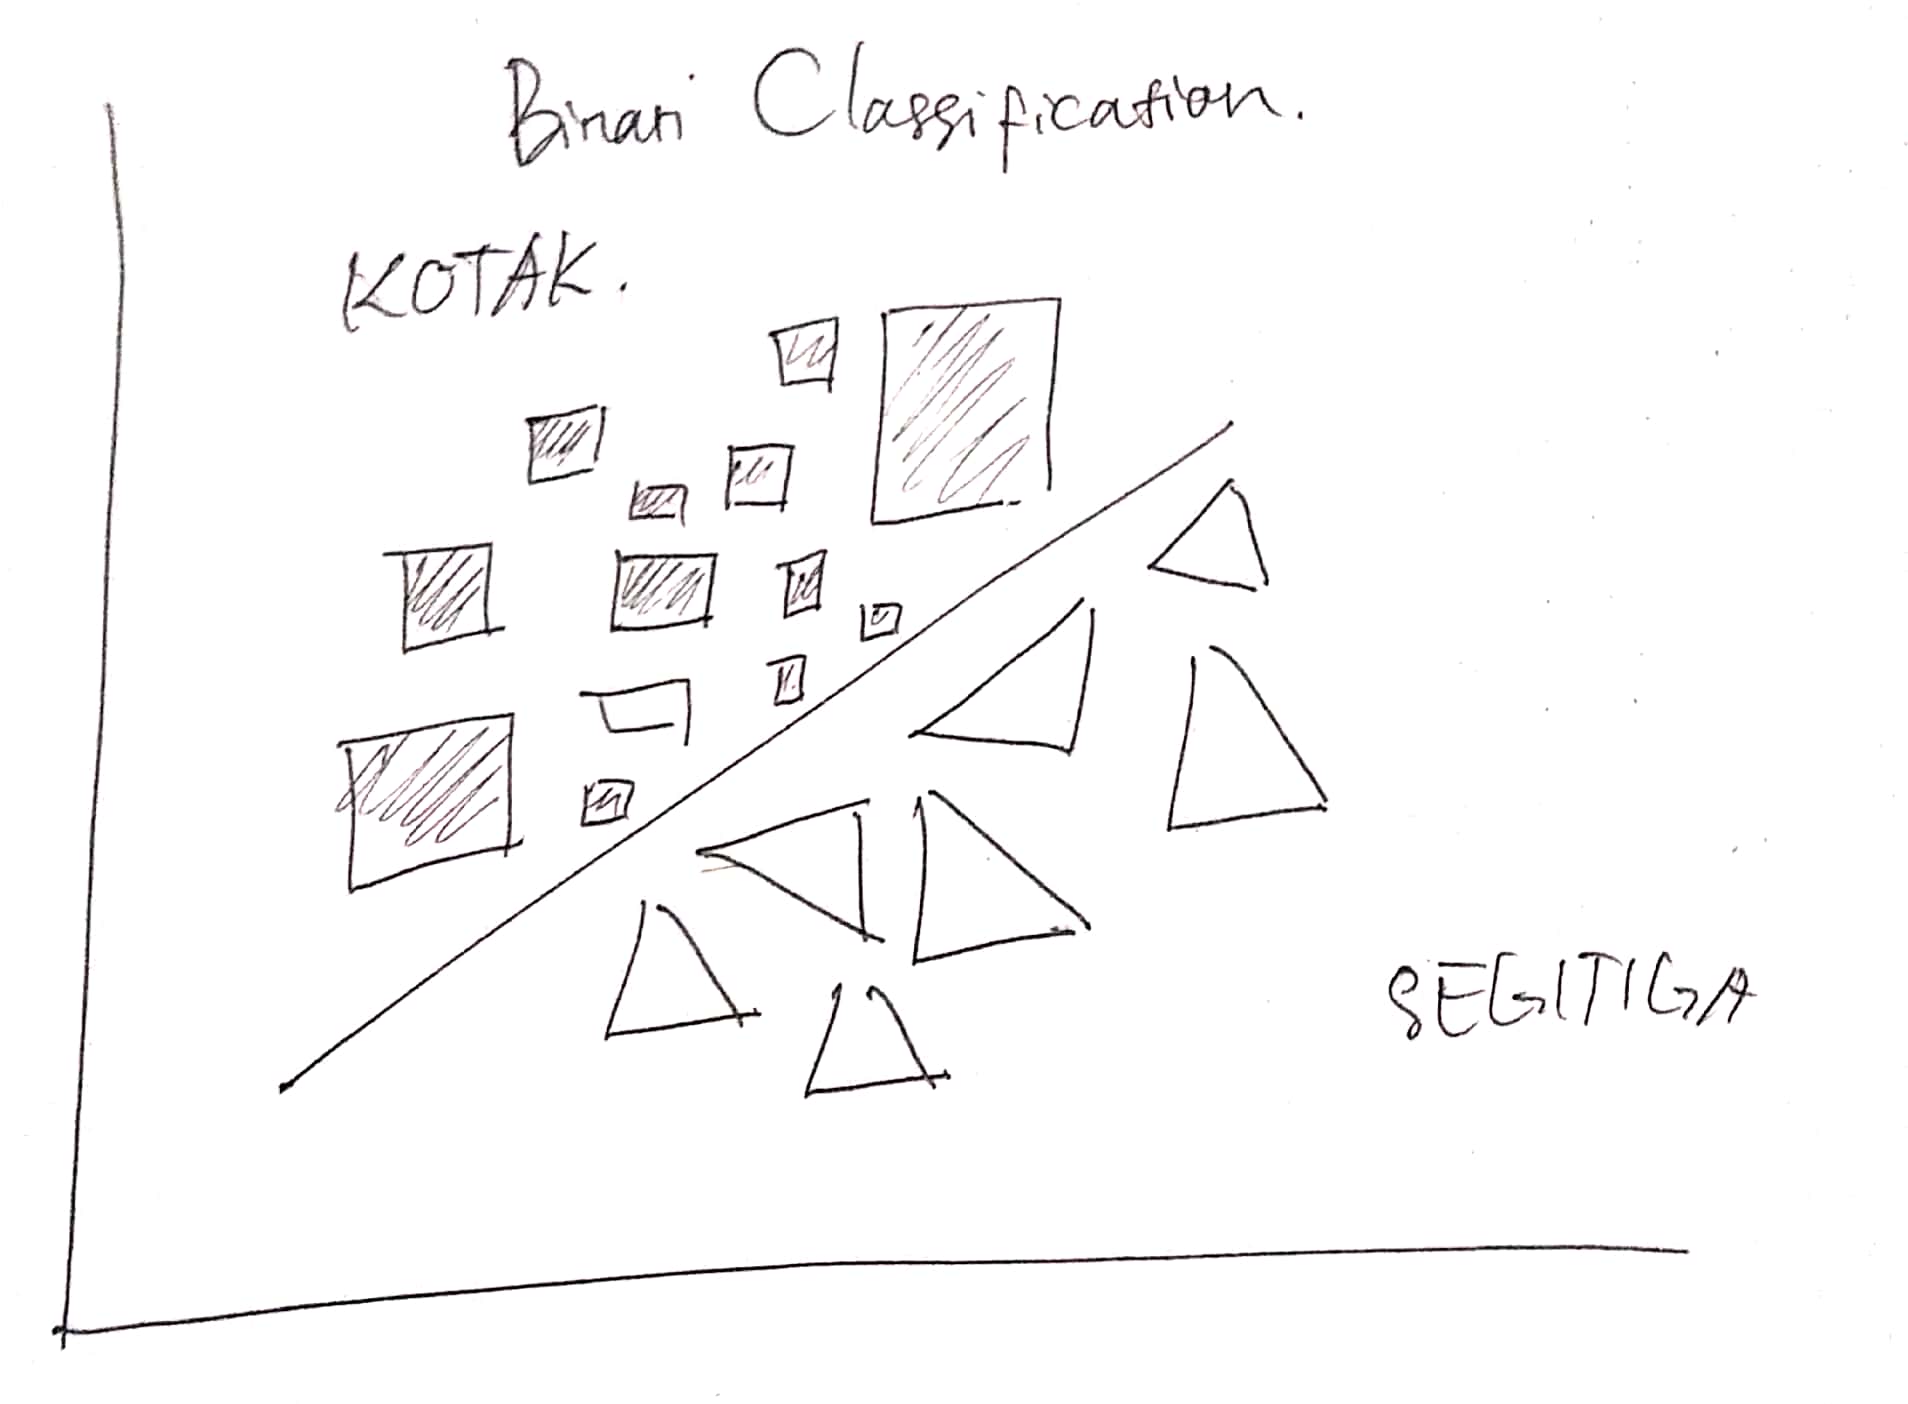 Binari Classification.
KOTAK.
SEGITIGA